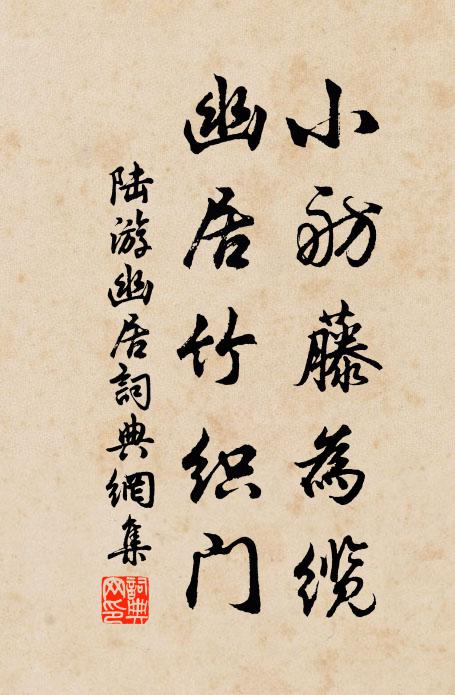 小舫藤為缆
幽居竹织门
陆游幽居詞典網集
詞典网印